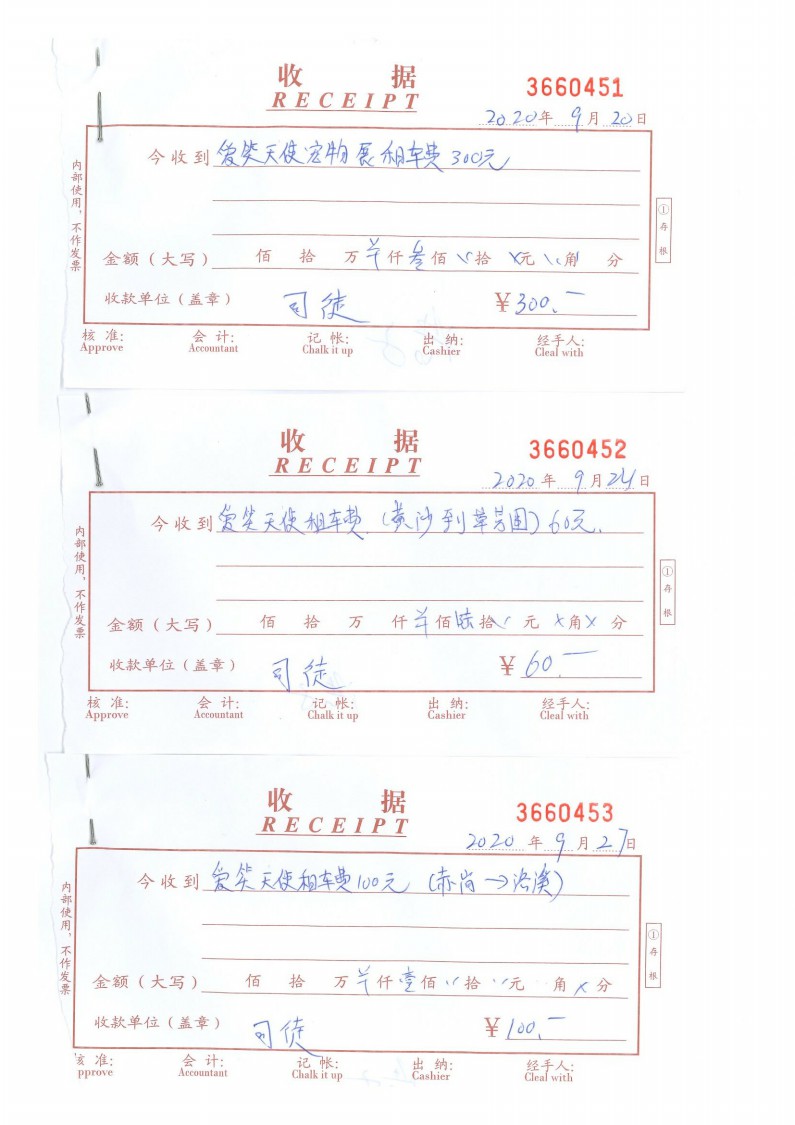 收 据
RECEIPT
3660451
2020年 9月 20日
今收到 爱笑天使宠物展租车费300元
金额（大写） 佰 拾 万 仟 叁佰 拾 元 角 分
收款单位（盖章） 司徒 ¥300.—
核 准: 会 计: 记 帐: 出 纳: 经手人:
Approve Accountant Chalk it up Cashier Cleal with
内部使用，不作发票
①存根
收 据
RECEIPT
3660452
2020年 9月24日
今收到 爱笑天使租车费（黄沙到草芳围）60元.
金额（大写） 佰 拾 万 仟 佰 陆拾 元 ×角× 分
收款单位（盖章） 司徒 ¥60.—
核 准: 会 计: 记 帐: 出 纳: 经手人:
Approve Accountant Chalk it up Cashier Cleal with
内部使用，不作发票
①存根
收 据
RECEIPT
3660453
2020年 9月 27日
今收到 爱笑天使租车费100元（赤岗→洛溪）
金额（大写） 佰 拾 万 仟 壹佰 拾 元 角 × 分
收款单位（盖章） 司徒 ¥100.—
准: 会 计: 记 帐: 出 纳: 经手人:
pprove Accountant Chalk it up Cashier Cleal with
内部使用，不作发票
①存根